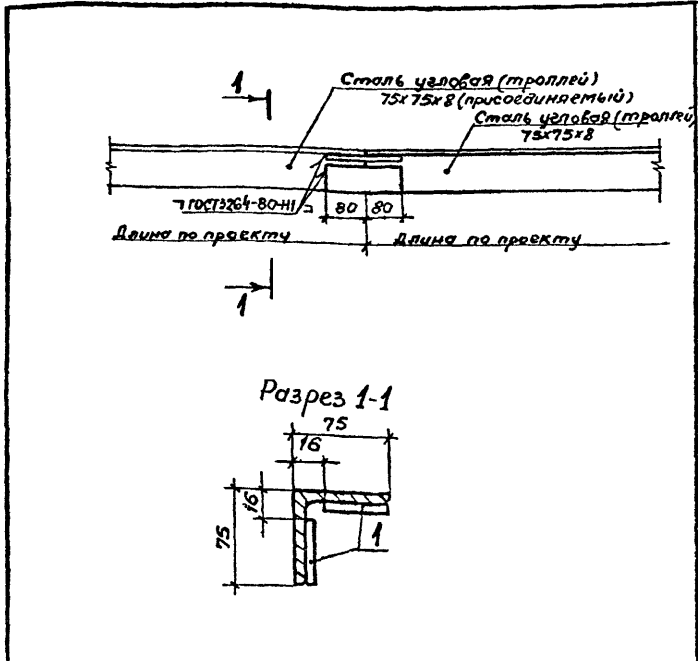 1
Сталь угловая (троллей)
75х75х8 (присоединяемый)
Сталь угловая (троллей)
75х75х8
ГОСТ5264-80-Н1
80 80
Длина по проекту
Длина по проекту
1
Разрез 1-1
75
16
16
75
1